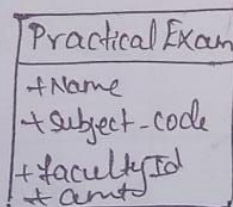 Practical Exam
+Name
+Subject-code
+facultyId
+amt